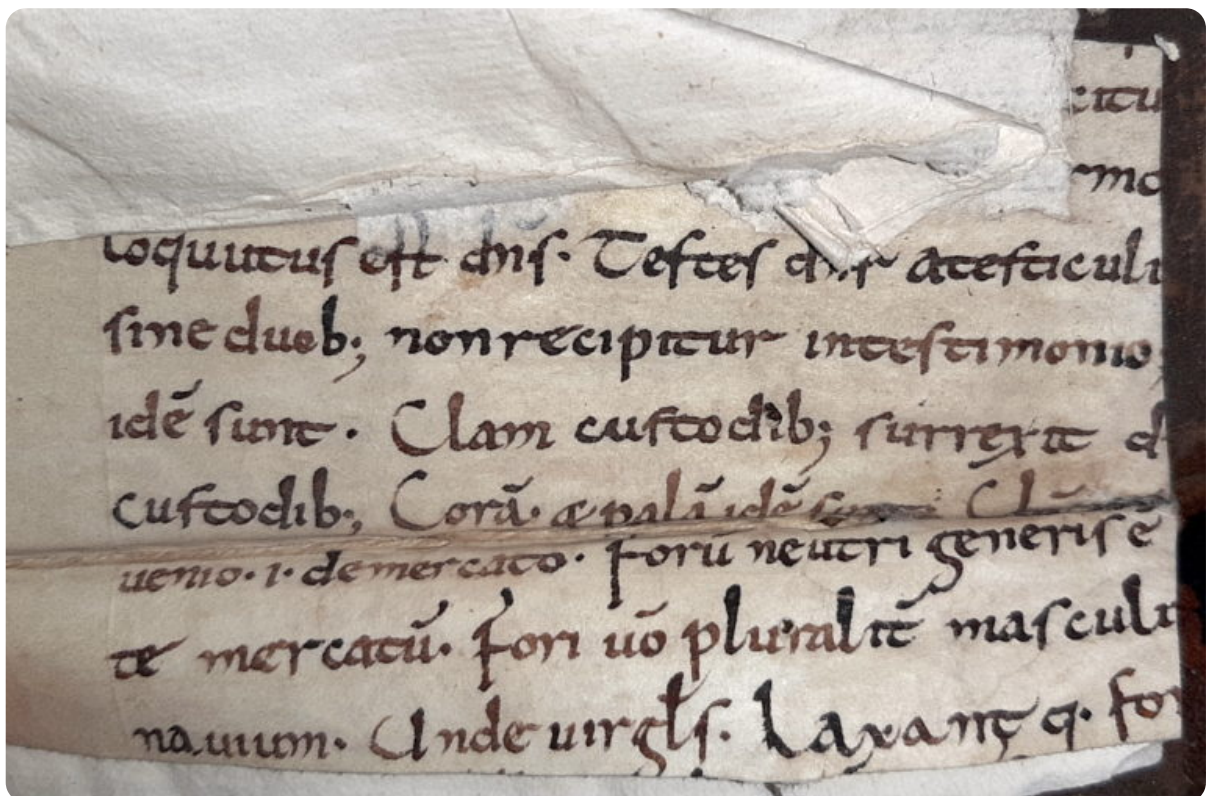 citu
rmo
loquutus est dn̄s. Testes dn̄s atesticuli
sine duob; non recipitur intestimonio
idē sunt. Clam custodib; surrexit
custodib; Corā. & palā idē sunt
uenio. i. de mercato. Forū neutri generis ē
te mercatū. Fori uō pluralit̄ masculi
nauium. Unde uirgl̄s. Laxant q. for